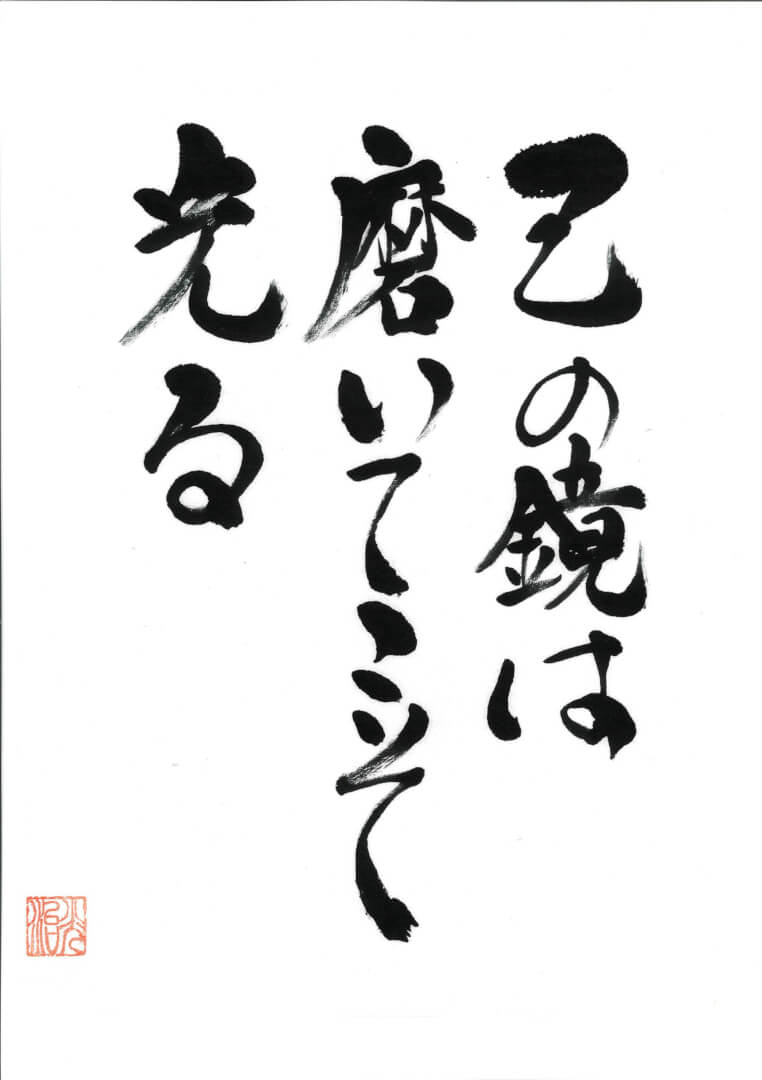 己の鏡は
磨いてこそ
光る